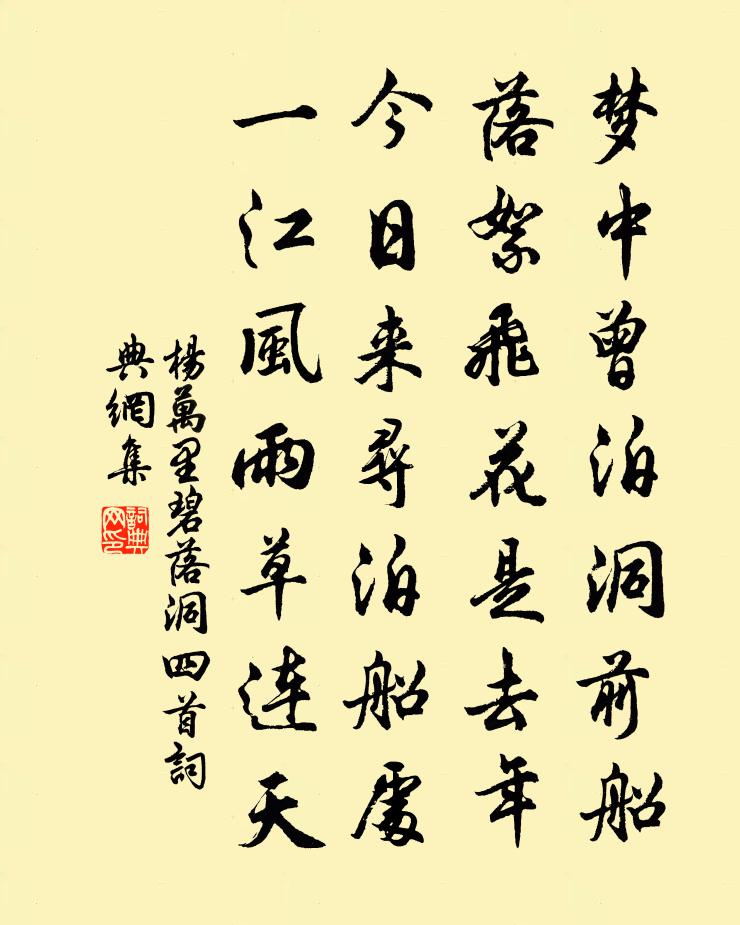 梦中曾泊洞前船
落絮飛花是去年
今日来尋泊船處
一江風雨草連天
楊萬里碧落洞四首詞
典網集
詞典
网印